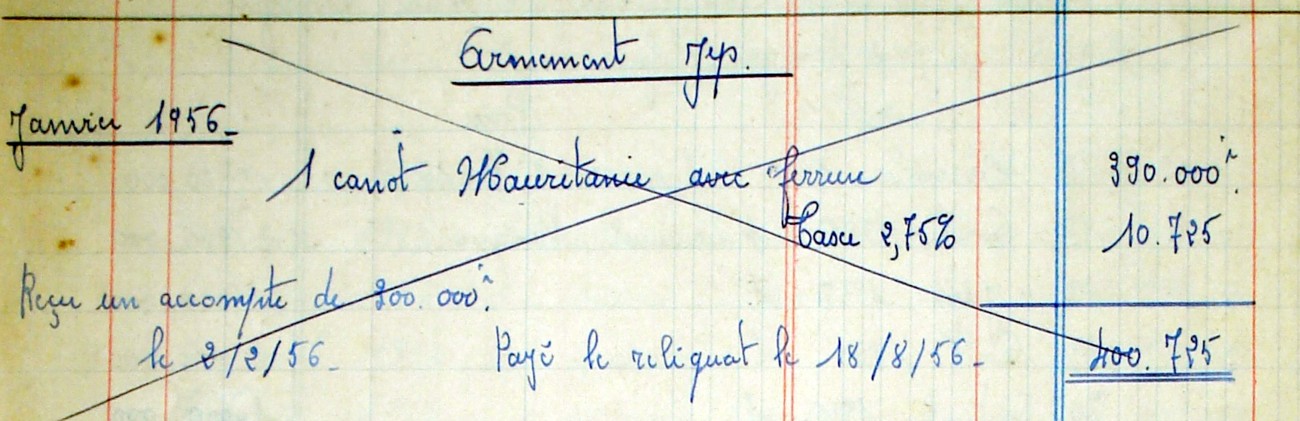 Armement Jyp.
Janvier 1956_
1 canot Mauritanie avec ferrure 390.000
Taxe 2,75% 10.725
Reçu un accompte de 200.000
le 2/2/56_ Payé le reliquat le 18/8/56_ 400.725